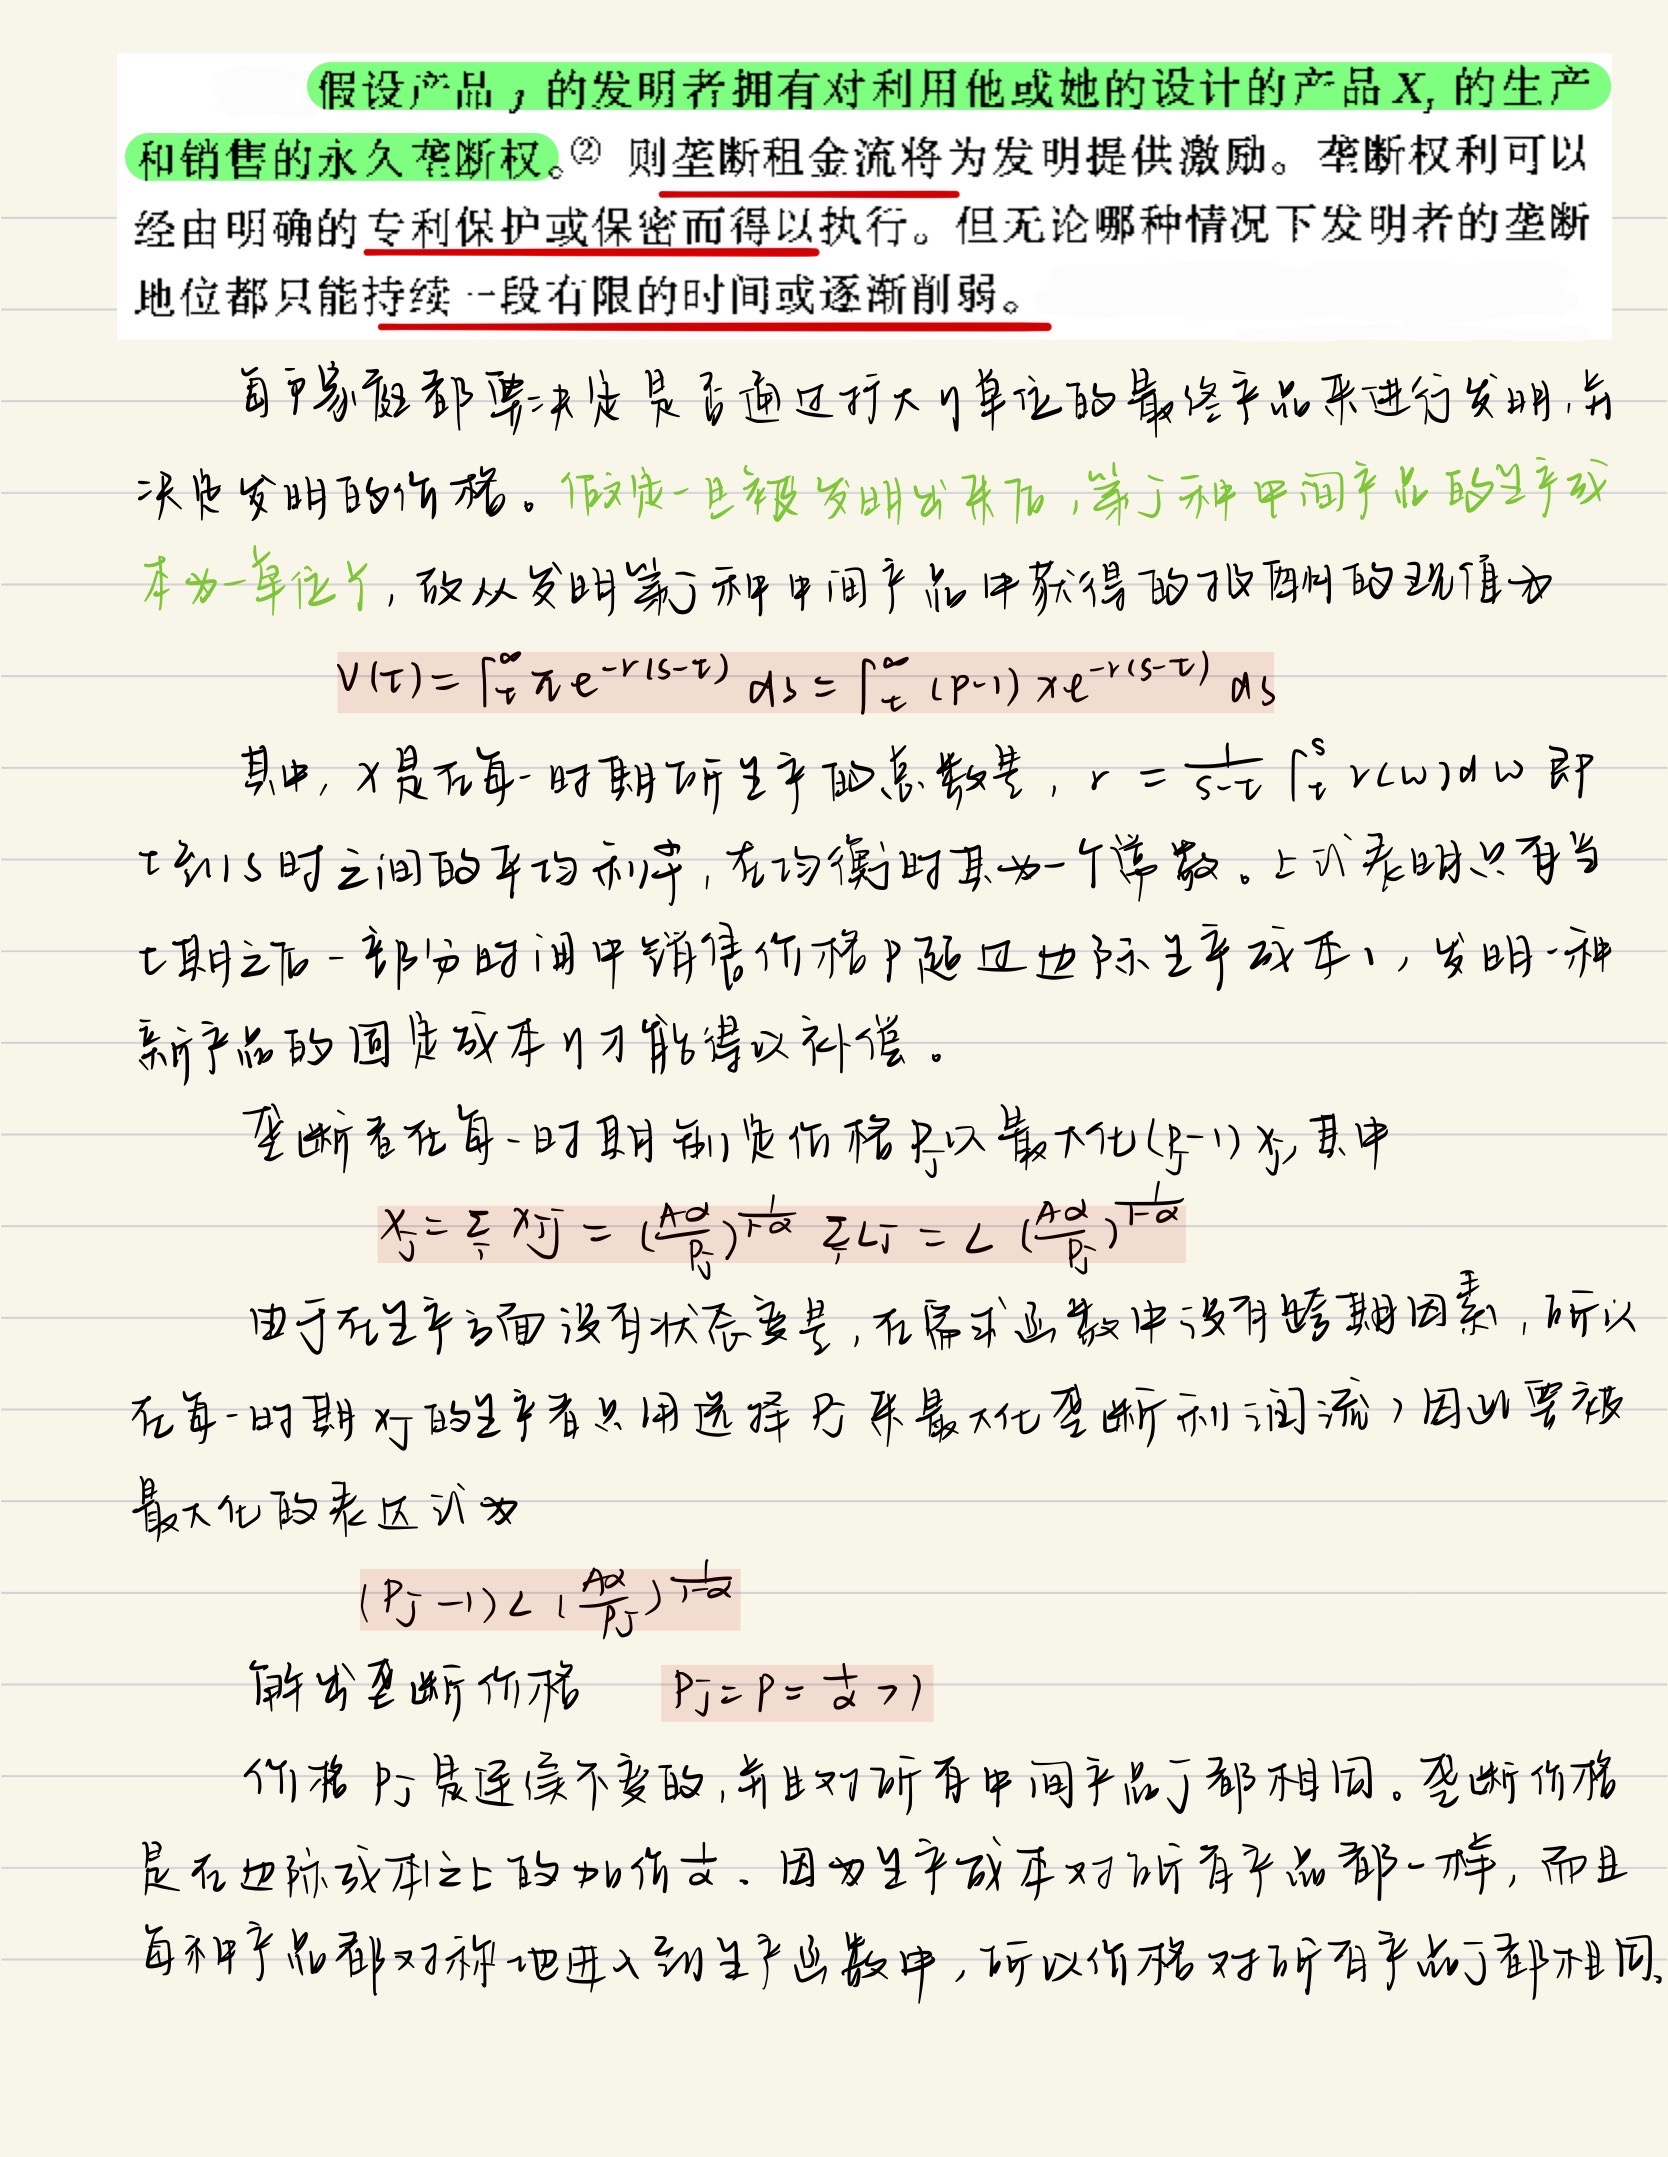 假设产品 j 的发明者拥有对利用他或她的设计的产品 Xj 的生产
和销售的永久垄断权。② 则垄断租金流将为发明提供激励。垄断权利可以
经由明确的专利保护或保密而得以执行。但无论哪种情况下发明者的垄断
地位都只能持续一段有限的时间或逐渐削弱。
每户家庭都要决定是否通过扩大η单位的最终产品来进行发明，并
决定发明的价格。假定一旦被发明出来后，第j种中间产品的生产成
本为一单位Y，故从发明第j种中间产品中获得的报酬的现值为
V(t)=∫_t^∞ πe^{-r(s-t)} ds=∫_t^∞ (p-1)xe^{-r(s-t)} ds
其中，X是在每一时期所生产的总数量，r = 1/(s-t) ∫_t^s r(w)dw 即
t到s时之间的平均利率，在均衡时其为一个常数。上式表明只有当
t期之后一部分时间中销售价格P超过边际生产成本1，发明一种
新产品的固定成本η才能得以补偿。
垄断者在每一时期制定价格Pj以最大化(Pj-1)Xj，其中
Xj=Σ_i Xij = (Aα/Pj)^{1/(1-α)} Σ_i Li = L (Aα/Pj)^{1/(1-α)}
由于在生产方面没有状态变量，在需求函数中没有跨期因素，所以
在每一时期Xj的生产者只用选择Pj来最大化垄断利润流，因此要被
最大化的表达式为
(Pj-1)L(Aα/Pj)^{1/(1-α)}
解出垄断价格 Pj=P=1/α>1
价格Pj是连续不变的，并且对所有中间产品j都相同。垄断价格
是在边际成本1之上的加价1/α. 因为生产成本对所有产品都一样，而且
每种产品都对称地进入到生产函数中，所以价格对所有产品j都相同.